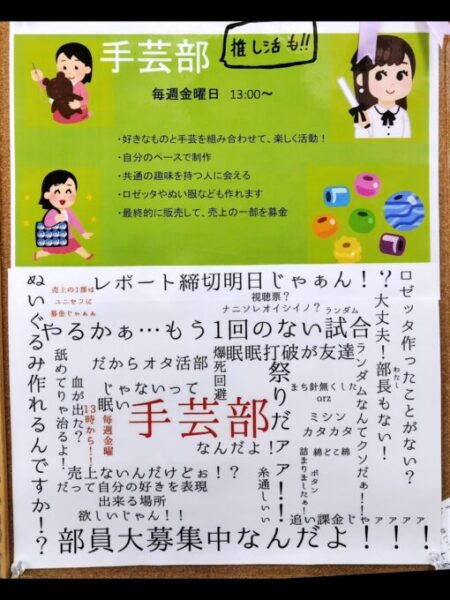 手芸部
推し活も!!
毎週金曜日 13:00～
・好きなものと手芸を組み合わせて、楽しく活動！
・自分のペースで制作
・共通の趣味を持つ人に会える
・ロゼッタやぬい服なども作れます
・最終的に販売して、売上の一部を募金
レポート締切明日じゃぁん！！
売上の1部は
ユニセフに
募金じゃぁぁ
視聴票？
ナニソレオイシイノ？
ランダム
やるかぁ…もう1回のない試合
ロゼッタ作ったことがない？
大丈夫！部長もない！
わたし
ランダムなんてクソだぁ！！
ぬいぐるみ作れるんですか！？
舐めてりゃ治るよ！
血が出た？
だからオタ活部
爆死回避
眠眠打破が友達
祭りだァァ！！
じゃないって
眠い
毎週金曜
13時から！！
手芸部
なんだよ！
まち針無くした
orz
ミシン
カタカタ
綿どこ綿
ボタン
詰まりましたぁ！
糸通しぃぃ
売上ないんだけどぉ！？
だって自分の好きを表現
出来る場所
欲しいじゃん！！
追い課金じゃァァァァ
部員大募集中なんだよ！！！